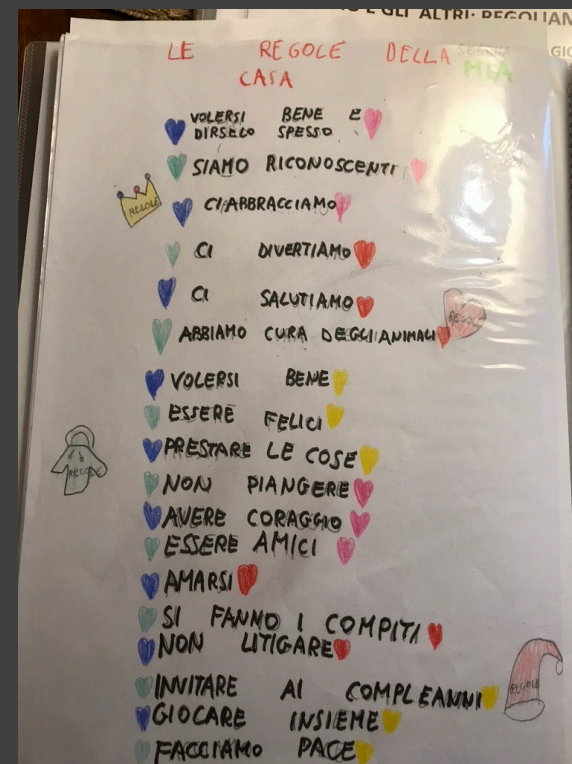 E GLI ALTRI: REGOLIAM
GIO
LE REGOLE DELLA
MIA
CASA
VOLERSI BENE E
DIRSELO SPESSO
SIAMO RICONOSCENTI
REGOLE
CI ABBRACCIAMO
CI DIVERTIAMO
CI SALUTIAMO
REGOLE
ABBIAMO CURA DEGLI ANIMALI
VOLERSI BENE
ESSERE FELICI
PRESTARE LE COSE
REGOLE
NON PIANGERE
AVERE CORAGGIO
ESSERE AMICI
AMARSI
SI FANNO I COMPITI
NON LITIGARE
INVITARE AI COMPLEANNI
REGOLE
GIOCARE INSIEME
FACCIAMO PACE